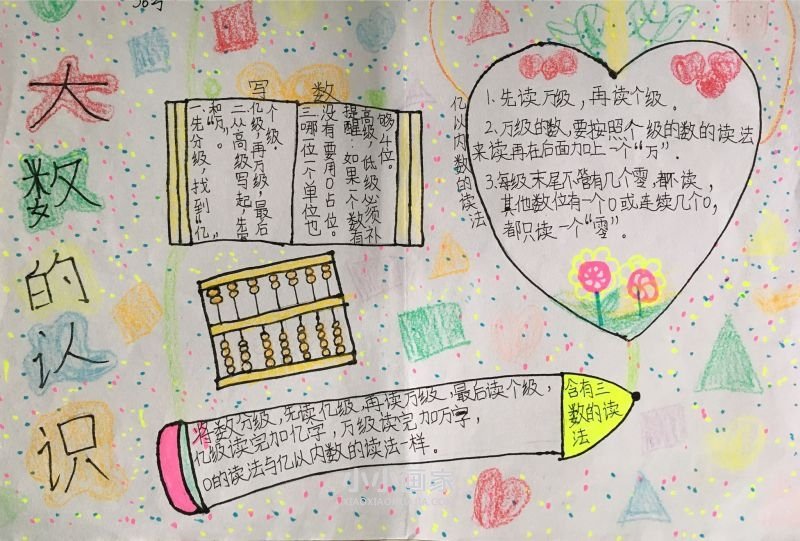 大数的认识
写数
一、先分级，找到“亿”
和“万”。
二、从高级写起，先写
亿级，再万级，最后
个级.
三、哪位一个单位也
没有要用0占位。
提醒：如果一个数有
高级，低级必须补
够4位。
亿以内数的读法
1.先读万级，再读个级。
2.万级的数，要按照个级的数的读法
来读再在后面加上一个“万”.
3.每级末尾不管有几个零，都不读，
其他数位有一个0或连续几个0，
都只读一个“零”。
将数分级，先读亿级，再读万级，最后读个级，
亿级读完加亿字，万级读完加万字，
0的读法与亿以内数的读法一样。
含有三
数的读
法
小小画家